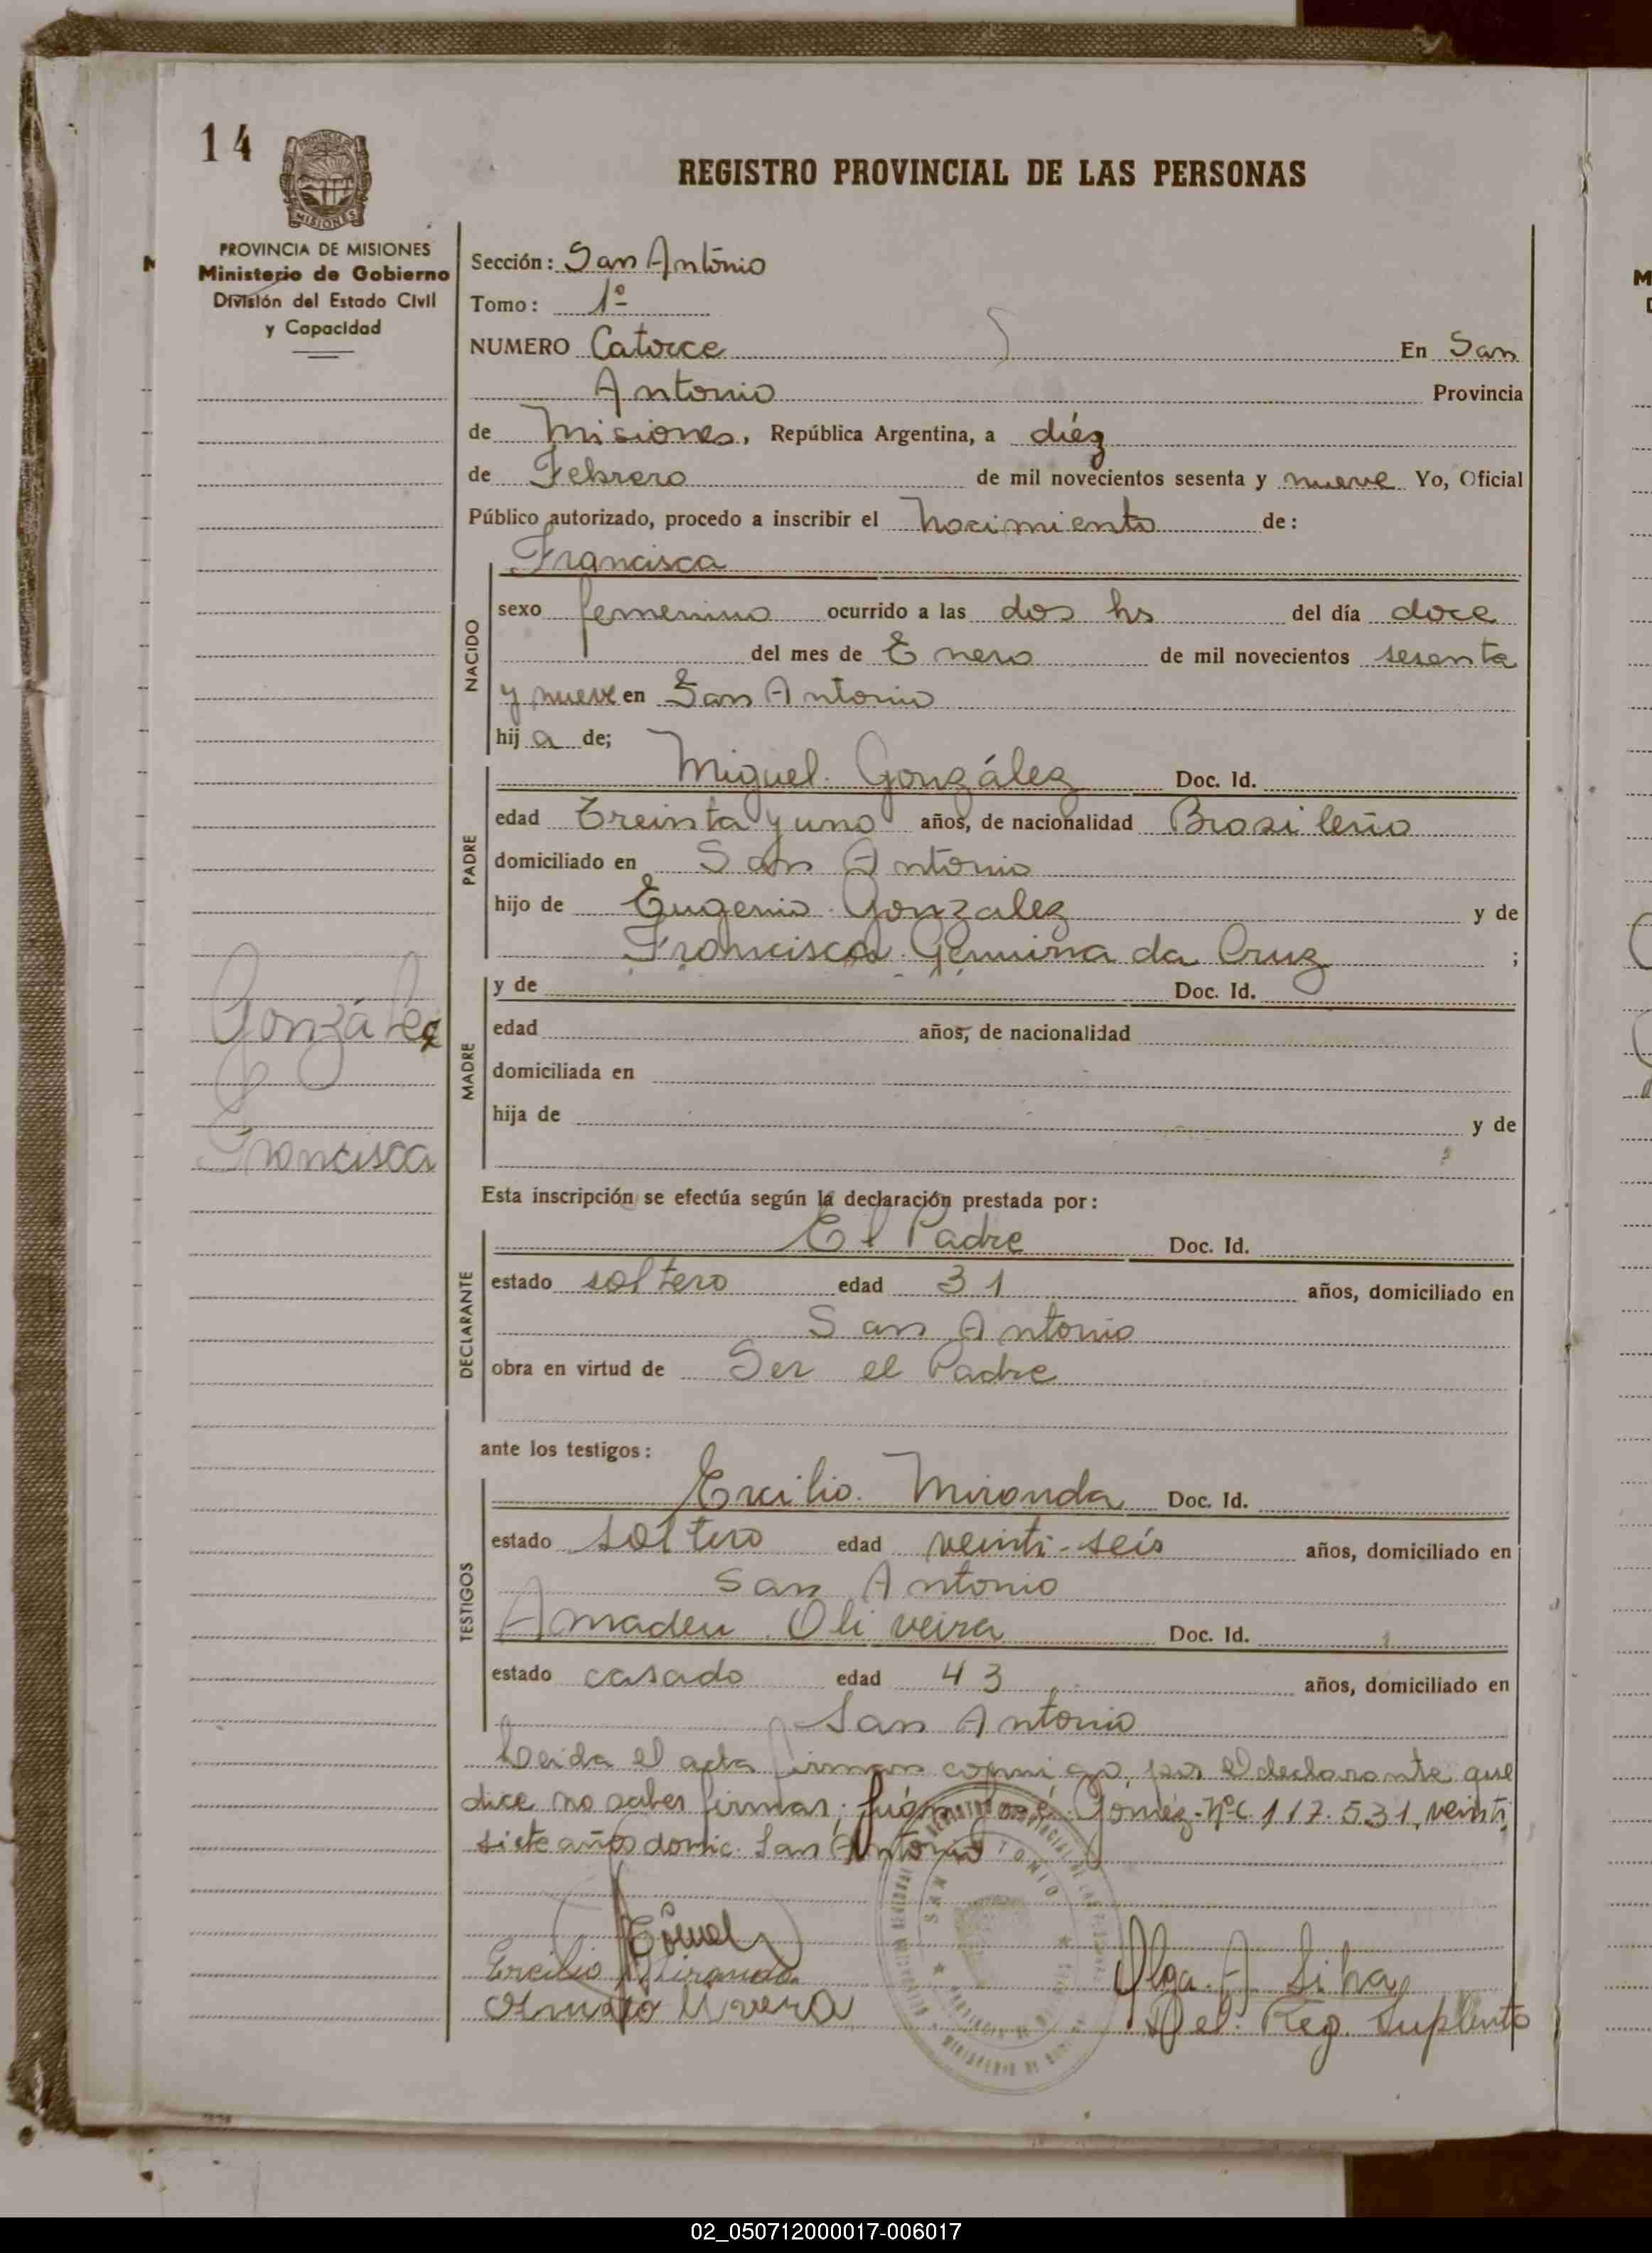 14
PROVINCIA DE MISIONES
Ministerio de Gobierno
División del Estado Civil
y Capacidad
REGISTRO PROVINCIAL DE LAS PERSONAS
Sección: San Antonio
Tomo: 1º
NUMERO Catorce En San
Antonio Provincia
de Misiones, República Argentina, a diéz
de Febrero de mil novecientos sesenta y nueve Yo, Oficial
Público autorizado, procedo a inscribir el Nacimiento de:
Francisca
NACIDO
sexo femenino ocurrido a las dos hs del día doce
del mes de Enero de mil novecientos sesenta
y nueve en San Antonio
hij a de;
PADRE
Miguel González Doc. Id.
edad Treinta y uno años, de nacionalidad Brasileño
domiciliado en San Antonio
hijo de Eugenio Gonzalez y de
Francisca da Cruz ;
González
Francisca
MADRE
y de Doc. Id.
edad años, de nacionalidad
domiciliada en
hija de y de
;
Esta inscripción se efectúa según la declaración prestada por:
DECLARANTE
El Padre Doc. Id.
estado soltero edad 31 años, domiciliado en
San Antonio
obra en virtud de Ser el Padre
ante los testigos:
TESTIGOS
Ercilio Miranda Doc. Id.
estado soltero edad veinti-seis años, domiciliado en
San Antonio
Amadeu Oliveira Doc. Id.
estado casado edad 43 años, domiciliado en
San Antonio
Leida el acta firman conmigo, por el declarante que
dice no saber firmar; José Gomez Nº C. 117.531, veinti
siete años domic. San Antonio
Ercilio Miranda
Olga A Silva
Del. Reg. Suplente
02_050712000017-006017